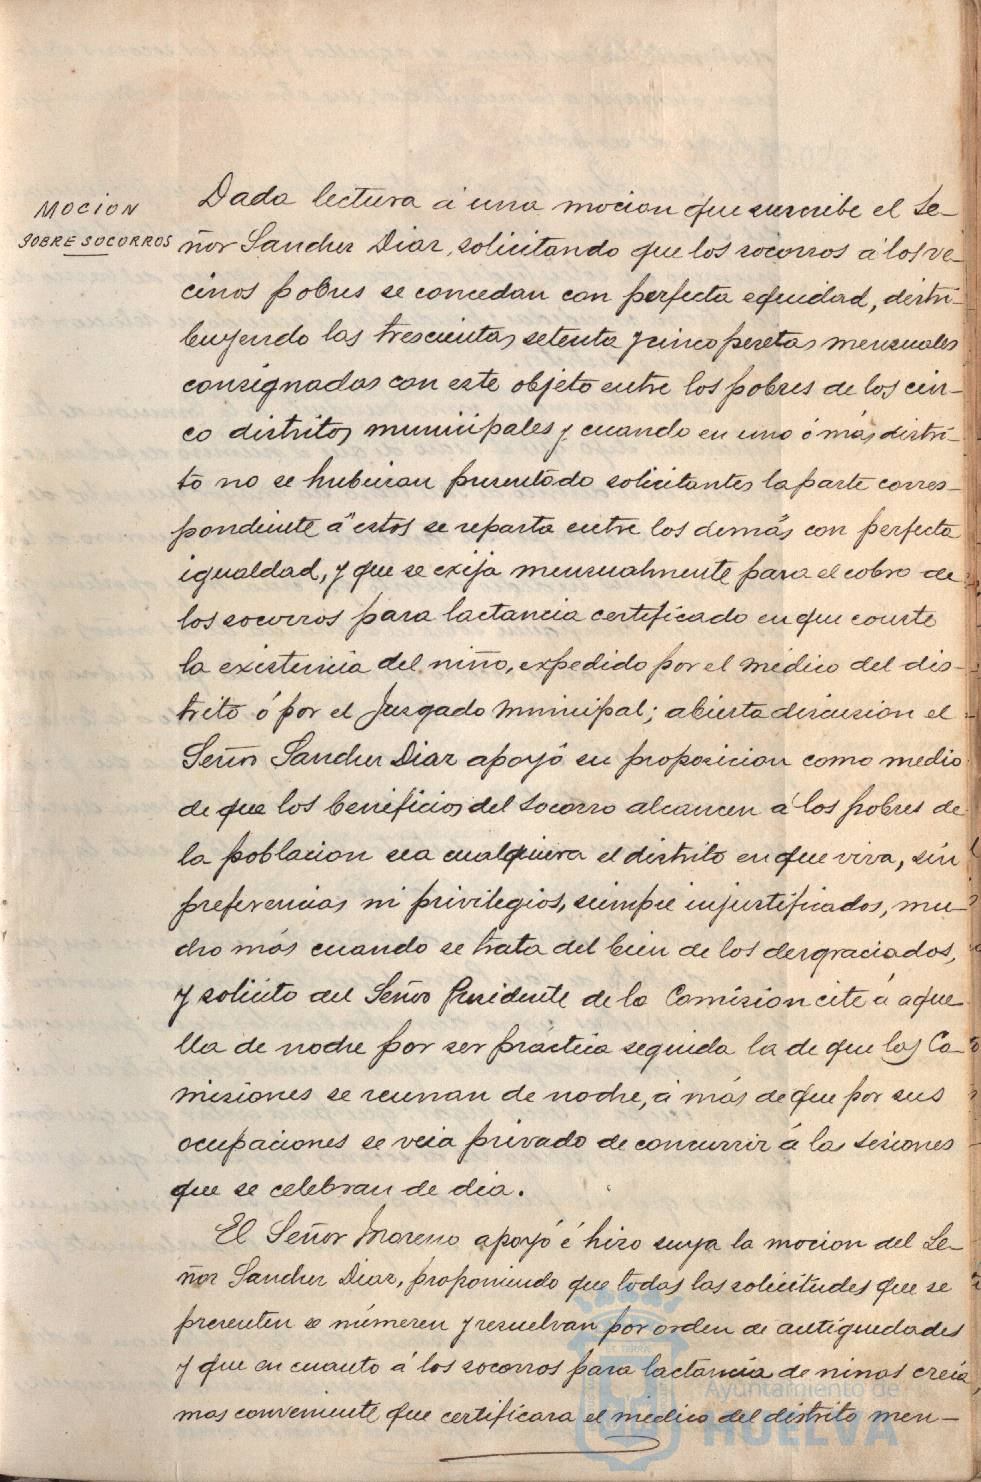 MOCION
SOBRE SOCORROS
Dada lectura á una mocion que suscribe el Se-
ñor Sanchez Diaz, solicitando que los socorros á los ve-
cinos pobres se concedan con perfecta equidad, distri-
buyendo las trescientas setenta y cinco pesetas mensuales
consignadas con este objeto entre los pobres de los cin-
co distritos municipales y cuando en uno ó más distri-
to no se hubieran presentado solicitantes la parte corres-
pondiente á estos se reparta entre los demás con perfecta
igualdad, y que se exija mensualmente para el cobro de
los socorros para lactancia certificado en que conste
la existencia del niño, expedido por el médico del dis-
trito ó por el Juzgado Municipal; abierta discusion el
Señor Sanchez Diaz apoyó su proposicion como medio
de que los beneficios del socorro alcancen á los pobres de
la poblacion sea cualquiera el distrito en que viva, sin
preferencias ni privilegios, siempre injustificados, mu-
cho más cuando se trata del bien de los desgraciados,
y solicito del Señor Presidente de la Comision cite á aque-
lla de noche por ser práctica seguida la de que las Co-
misiones se reunan de noche, á más de que por sus
ocupaciones se veia privado de concurrir á las sesiones
que se celebran de dia.
El Señor Moreno apoyó é hizo suya la mocion del Se-
ñor Sanchez Diaz, proponiendo que todas las solicitudes que se
presenten se númeren y resuelvan por orden de antiguedades
y que en cuanto á los socorros para lactancia de ninos creia
mas conveniente que certificara el medico del distrito men-
Ayuntamiento de
HUELVA